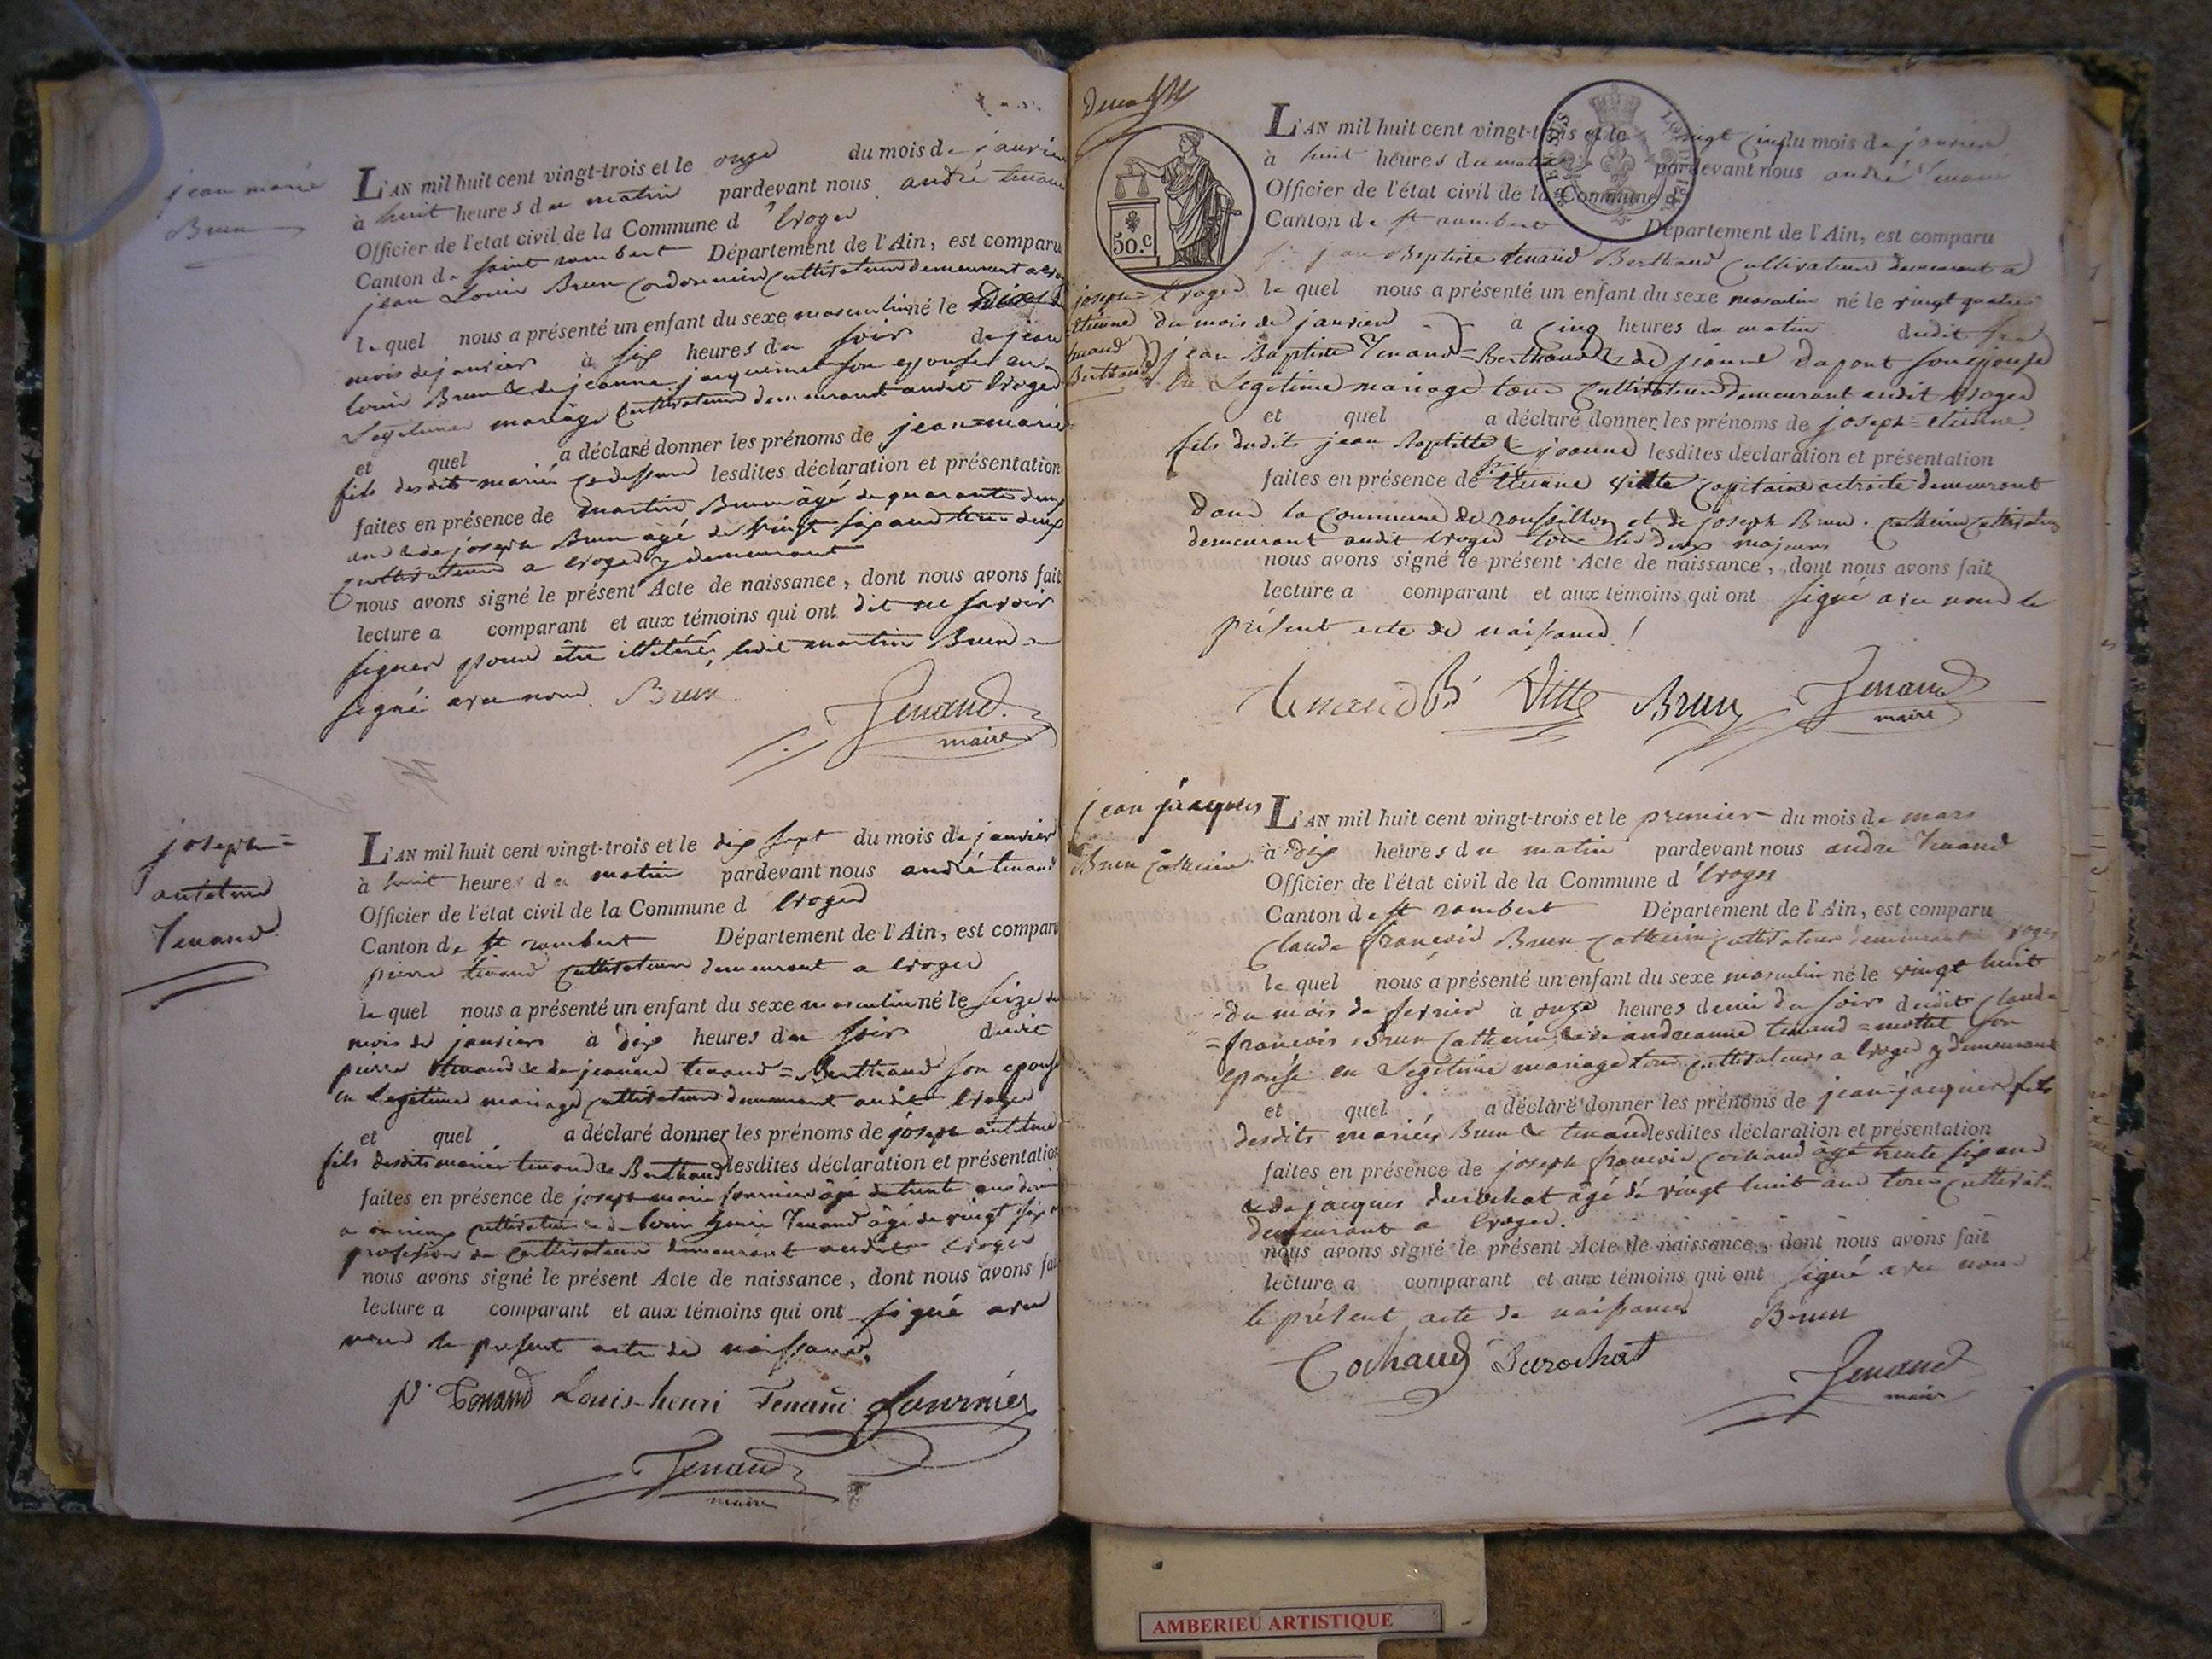 jean marie
Brun
L'AN mil huit cent vingt-trois et le onze du mois de janvier
à huit heures du matin pardevant nous andré tenand
Officier de l'état civil de la Commune d'Evoges
Canton de saint rambert Département de l'Ain, est comparu
jean Louis Brun Cordonnier Cultivateur demeurant a
le quel nous a présenté un enfant du sexe masculin né le Dix
mois de janvier à six heures du soir de jean
louis Brun & de jeanne jacquemet son epouse en
Legitime mariage Cultivateurs demeurant audit Evoges
et quel a déclaré donner les prénoms de jean=marie
fils desdits mariés lesdites déclaration et présentation
faites en présence de martin Brun âgé de quarante deux
ans & de joseph Brun âgé de vingt six ans tous deux
Cultivateurs a Evoges y demeurant
nous avons signé le présent Acte de naissance, dont nous avons fait
lecture a comparant et aux témoins qui ont dit ne savoir
signer pour être illitéré, ledit martin Brun
signé avec nous. Brun
Tenand
maire
joseph=
antelme
Tenand
L'AN mil huit cent vingt-trois et le dix sept du mois de janvier
à huit heures du matin pardevant nous andré tenand
Officier de l'état civil de la Commune d Evoges
Canton de st rambert Département de l'Ain, est comparu
pierre tenand Cultivateur demeurant a Evoges
le quel nous a présenté un enfant du sexe masculin né le seize du
mois de janvier à dix heures du soir dudit
pierre tenand & de jeanne tenand=Berthaud son epouse
en Legitime mariage Cultivateurs demeurant audit Evoges
et quel a déclaré donner les prénoms de joseph antelme
fils desdits mariés tenand & Berthaud lesdites déclaration et présentation
faites en présence de joseph marie fournier âgé de trente ans
Cultivateur & de louis henri Tenand âgé de vingt six
profession de Cultivateur demeurant audit Evoges
nous avons signé le présent Acte de naissance, dont nous avons fait
lecture a comparant et aux témoins qui ont signé avec
nous le présent acte de naissance.
P. Tenand Louis-henri Tenand fournier
Tenand
maire
50.C
L'AN mil huit cent vingt-trois et le vingt cinq du mois de janvier
à huit heures du matin pardevant nous andré Tenand
Officier de l'état civil de la Commune d
Canton de st rambert Département de l'Ain, est comparu
jean Baptiste tenand Berthaud Cultivateur demeurant a
joseph=
etienne
tenand
Berthaud
Evoges le quel nous a présenté un enfant du sexe masculin né le vingt quatre
du mois de janvier à cinq heures du matin dudit
jean Baptiste Tenand=Berthaud & de jeanne Dupont son epouse
en Legitime mariage tous Cultivateurs demeurant audit Evoges
et quel a déclaré donner les prénoms de joseph=etienne
fils dudits jean Baptiste & jeanne lesdites déclaration et présentation
faites en présence de etienne vitte capitaine retraité demeurant
dans la Commune de roussillon et de joseph Brun. Catherin Cultivateur
demeurant audit Evoges tous les deux majeurs
nous avons signé le présent Acte de naissance, dont nous avons fait
lecture a comparant et aux témoins qui ont signé avec nous le
présent acte de naissance !
tenand B Vitte Brun Tenand
maire
jean jacques
Brun Catherin
L'AN mil huit cent vingt-trois et le premier du mois de mars
à dix heures du matin pardevant nous andré Tenand
Officier de l'état civil de la Commune d'Evoges
Canton de st rambert Département de l'Ain, est comparu
Claude françois Brun Catherin Cultivateur demeurant a Evoges
le quel nous a présenté un enfant du sexe masculin né le vingt huit
du mois de fevrier à onze heures demi du soir dudit Claude
=françois Brun Catherin & de andreanne tenand=mottet son
epouse en Legitime mariage tous Cultivateurs a Evoges y demeurant
et quel a déclaré donner les prénoms de jean-jacques fils
desdits mariés Brun & tenand lesdites déclaration et présentation
faites en présence de joseph françois Cochaud âgé trente six ans
& de jacques durochat âgé de vingt huit ans tous Cultivateurs
demeurant a Evoges.
nous avons signé le présent Acte de naissance, dont nous avons fait
lecture a comparant et aux témoins qui ont signé avec nous
le présent acte de naissance Brun
Cochaud Durochat
Tenand
maire
AMBERIEU ARTISTIQUE